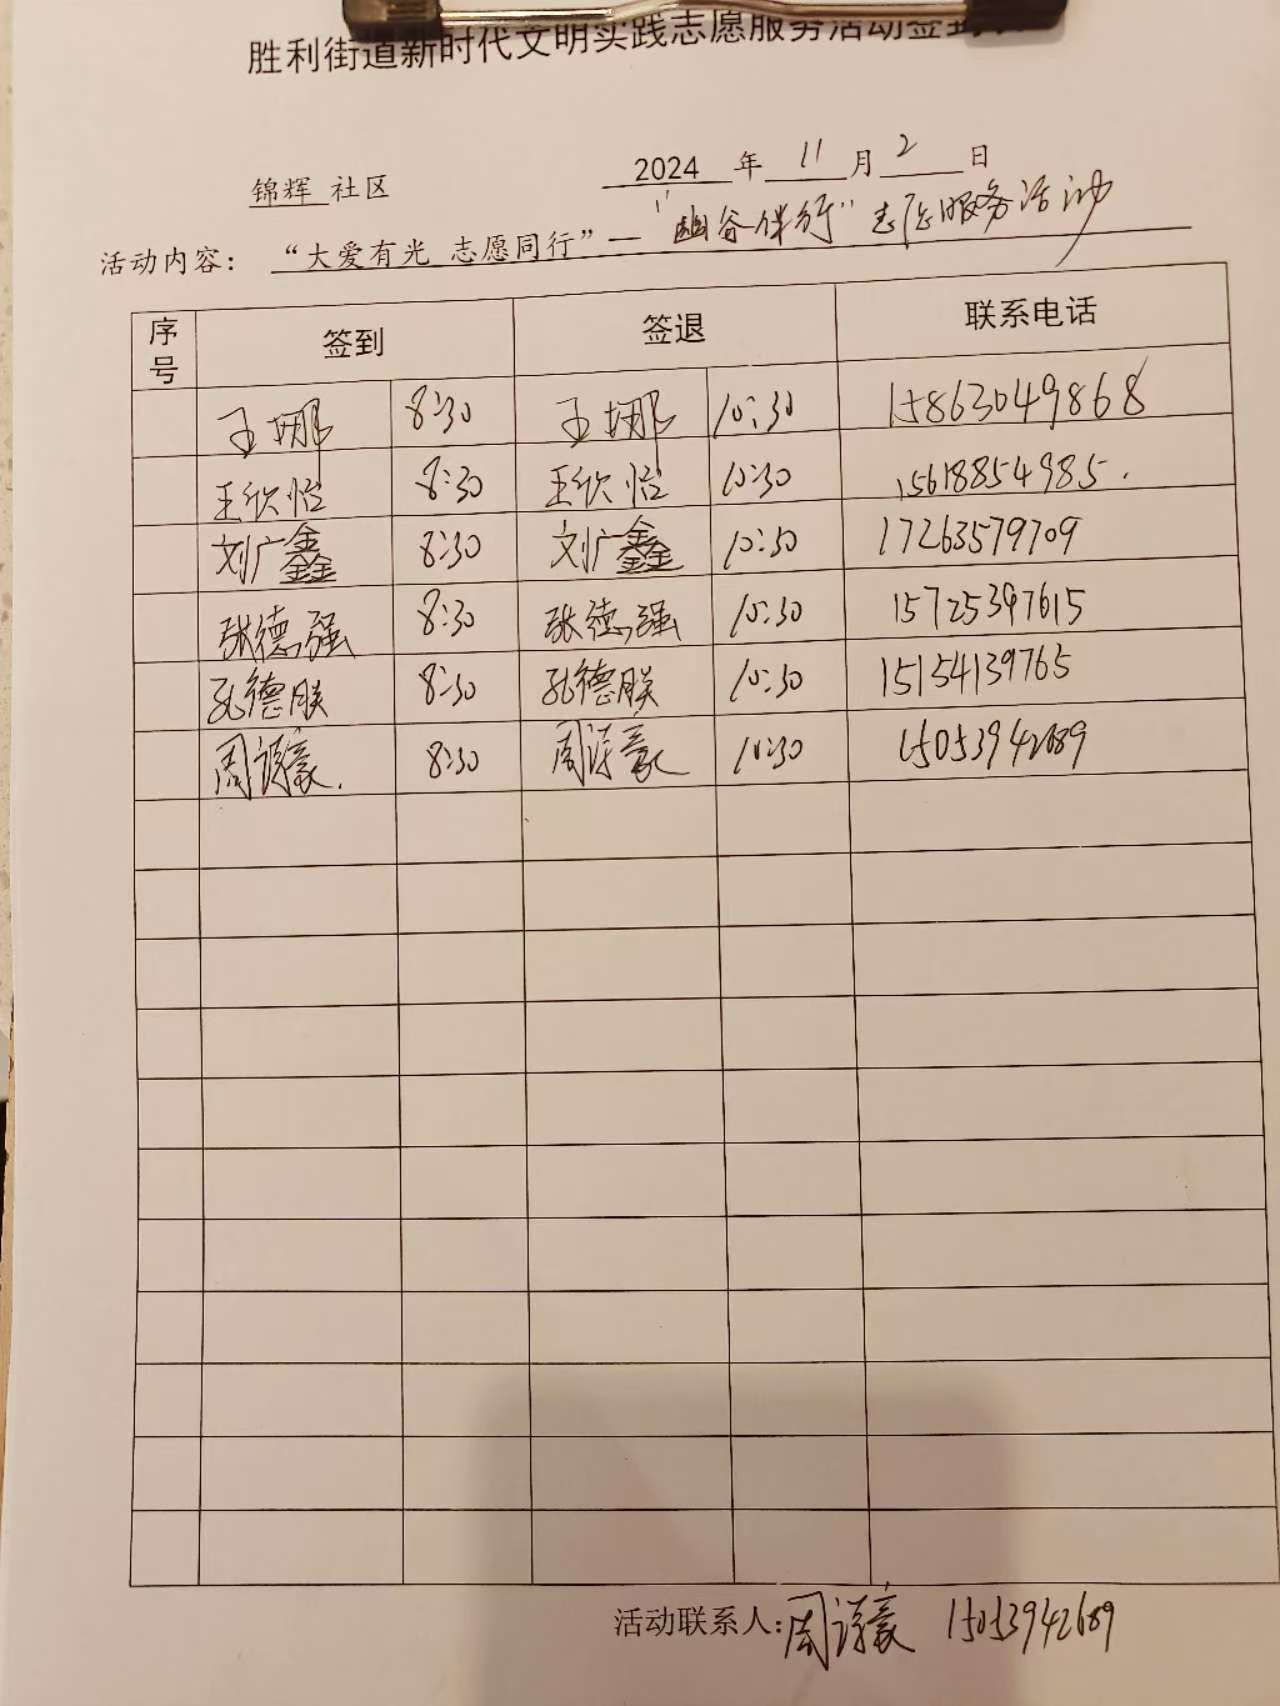 胜利街道新时代文明实践志愿服务活动签到
锦辉 社区 2024 年 11 月 2 日
活动内容： “大爱有光 志愿同行”— “幽谷伴行”志愿服务活动
序号 签到 签退 联系电话
王娜 8:30 王娜 10:30 15863049868
王欣怡 8:30 王欣怡 10:30 15618854985.
刘广鑫 8:30 刘广鑫 10:30 17263579709
张德强 8:30 张德强 10:30 15725397615
孔德朕 8:30 孔德朕 10:30 15154139765
周 豪. 8:30 周 豪 10:30 15053942689
活动联系人: 周 豪 15053942689